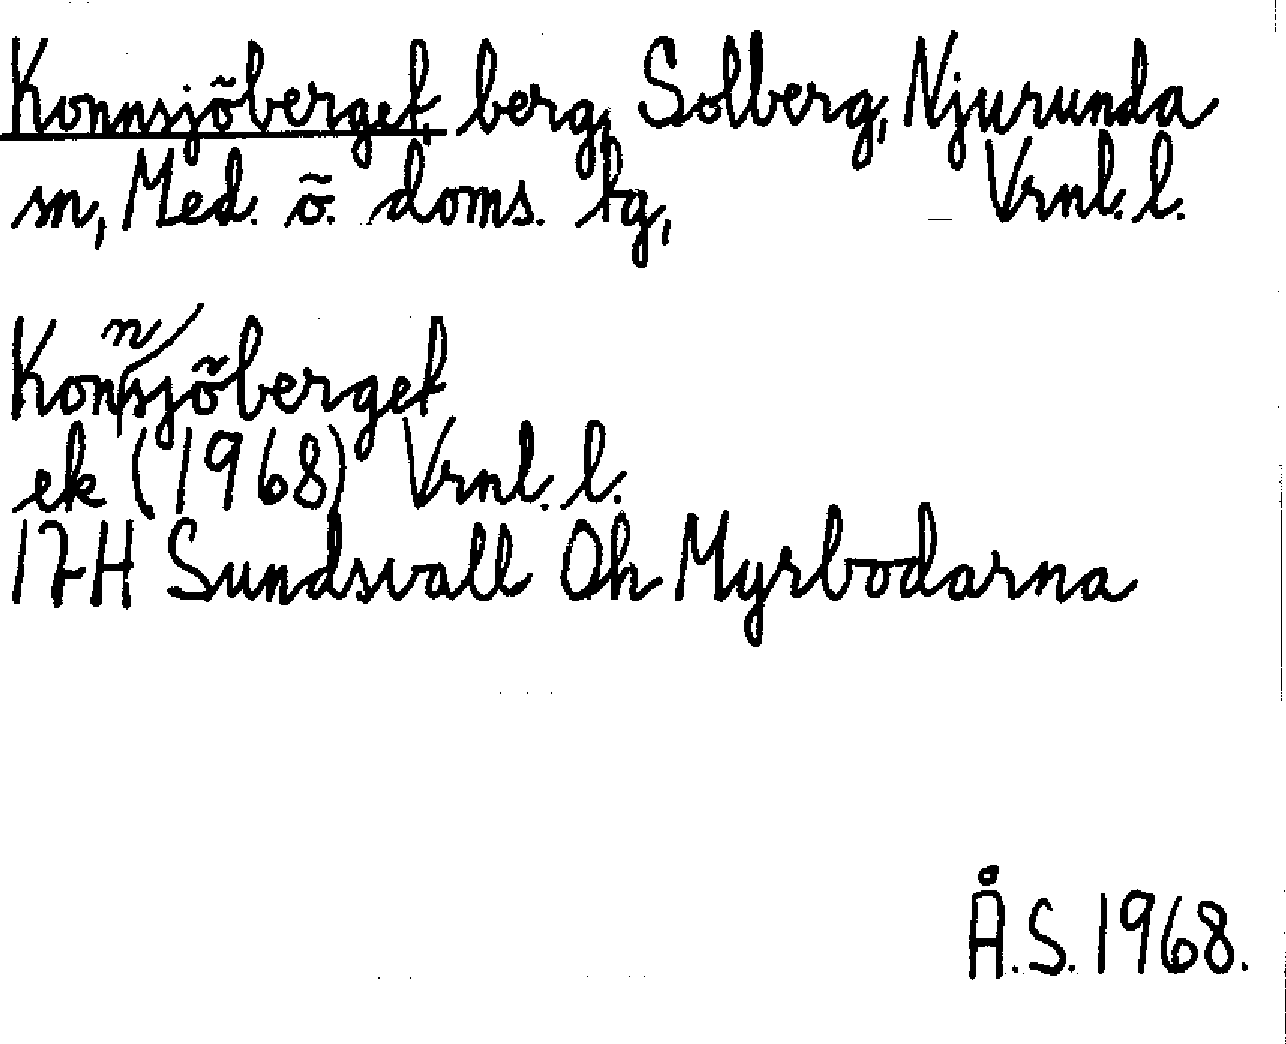 Konnsjöberget, berg, Solberg, Njurunda
sn, Med. ö. doms. tg, Vrnl. l.
Konnsjöberget
ek (1968) Vrnl. l.
17H Sundsvall Oh Myrbodarna
Å.S. 1968.